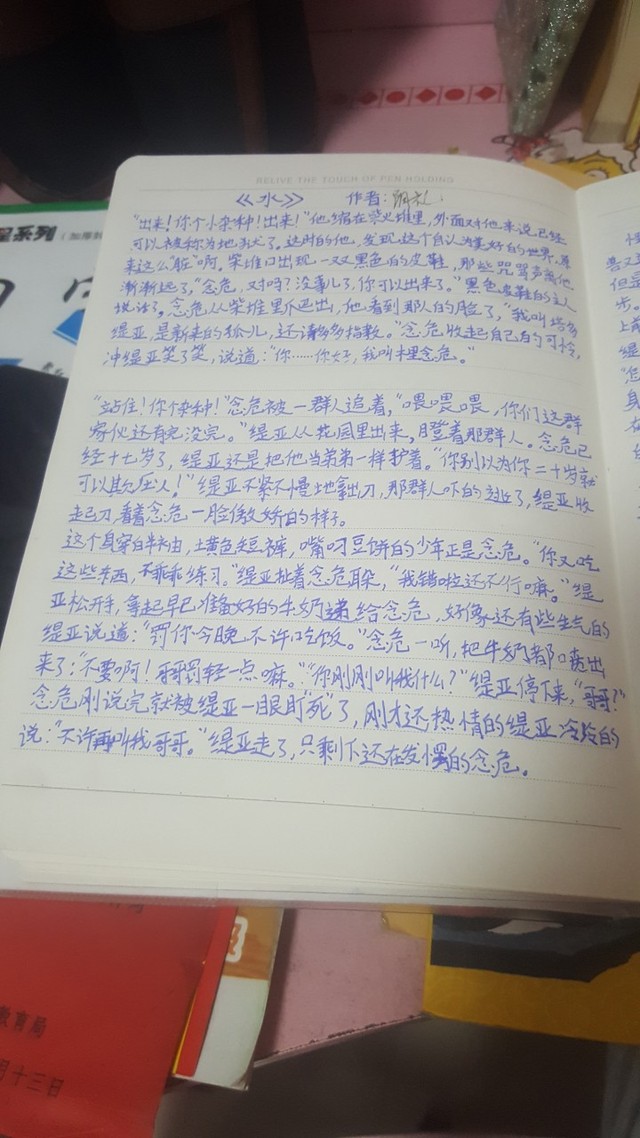 RELIVE THE TOUCH OF PEN HOLDING
《水》 作者:
"出来!你个小杂种!出来!"他缩在柴火堆里,外面对他来说已经
可以被称为地狱了。这时的他,发现这个自认为美好的世界,原
来这么"脏"啊。柴堆口出现一双黑色的皮鞋,那些咒骂声
渐渐远了。"念危,对吗?没事儿了,你可以出来了。"黑色皮鞋的主人
说话了。念危从柴堆里爬出,他看到那人的脸了,"我叫塔多
缇亚,是新来的孤儿,还请多多指教。"念危收起自己的可怜,
冲缇亚笑了笑,说道:"你……你好,我叫十里念危。"
"站住!你个杂种!"念危被一群人追着,"喂喂喂,你们这群
家伙还有完没完。"缇亚从花园里出来,瞪着那群人。念危已
经十七岁了,缇亚还是把他当弟弟一样护着。"你别以为你二十岁就
可以欺压人!"缇亚不紧不慢地拿出刀,那群人吓的逃了,缇亚收
起刀,看着念危一脸傲娇的样子。
这个身穿白衬衫,土黄色短裤,嘴叼豆饼的少年正是念危。"你又吃
这些东西,不乖乖练习。"缇亚扯着念危耳朵,"我错啦还不行嘛。"缇
亚松开手,拿起早已准备好的牛奶递给念危,好像还有些生气的
缇亚说道:"罚你今晚不许吃饭。"念危一听,把牛奶都喷出
来了:"不要啊!哥哥罚轻一点嘛。""你刚刚叫我什么?"缇亚停下来,"哥哥?"
念危刚说完就被缇亚一眼盯"死"了,刚才还热情的缇亚冷冷的
说:"不许再叫我哥哥。"缇亚走了,只剩下还在发愣的念危。
系列
教育局
月十三日